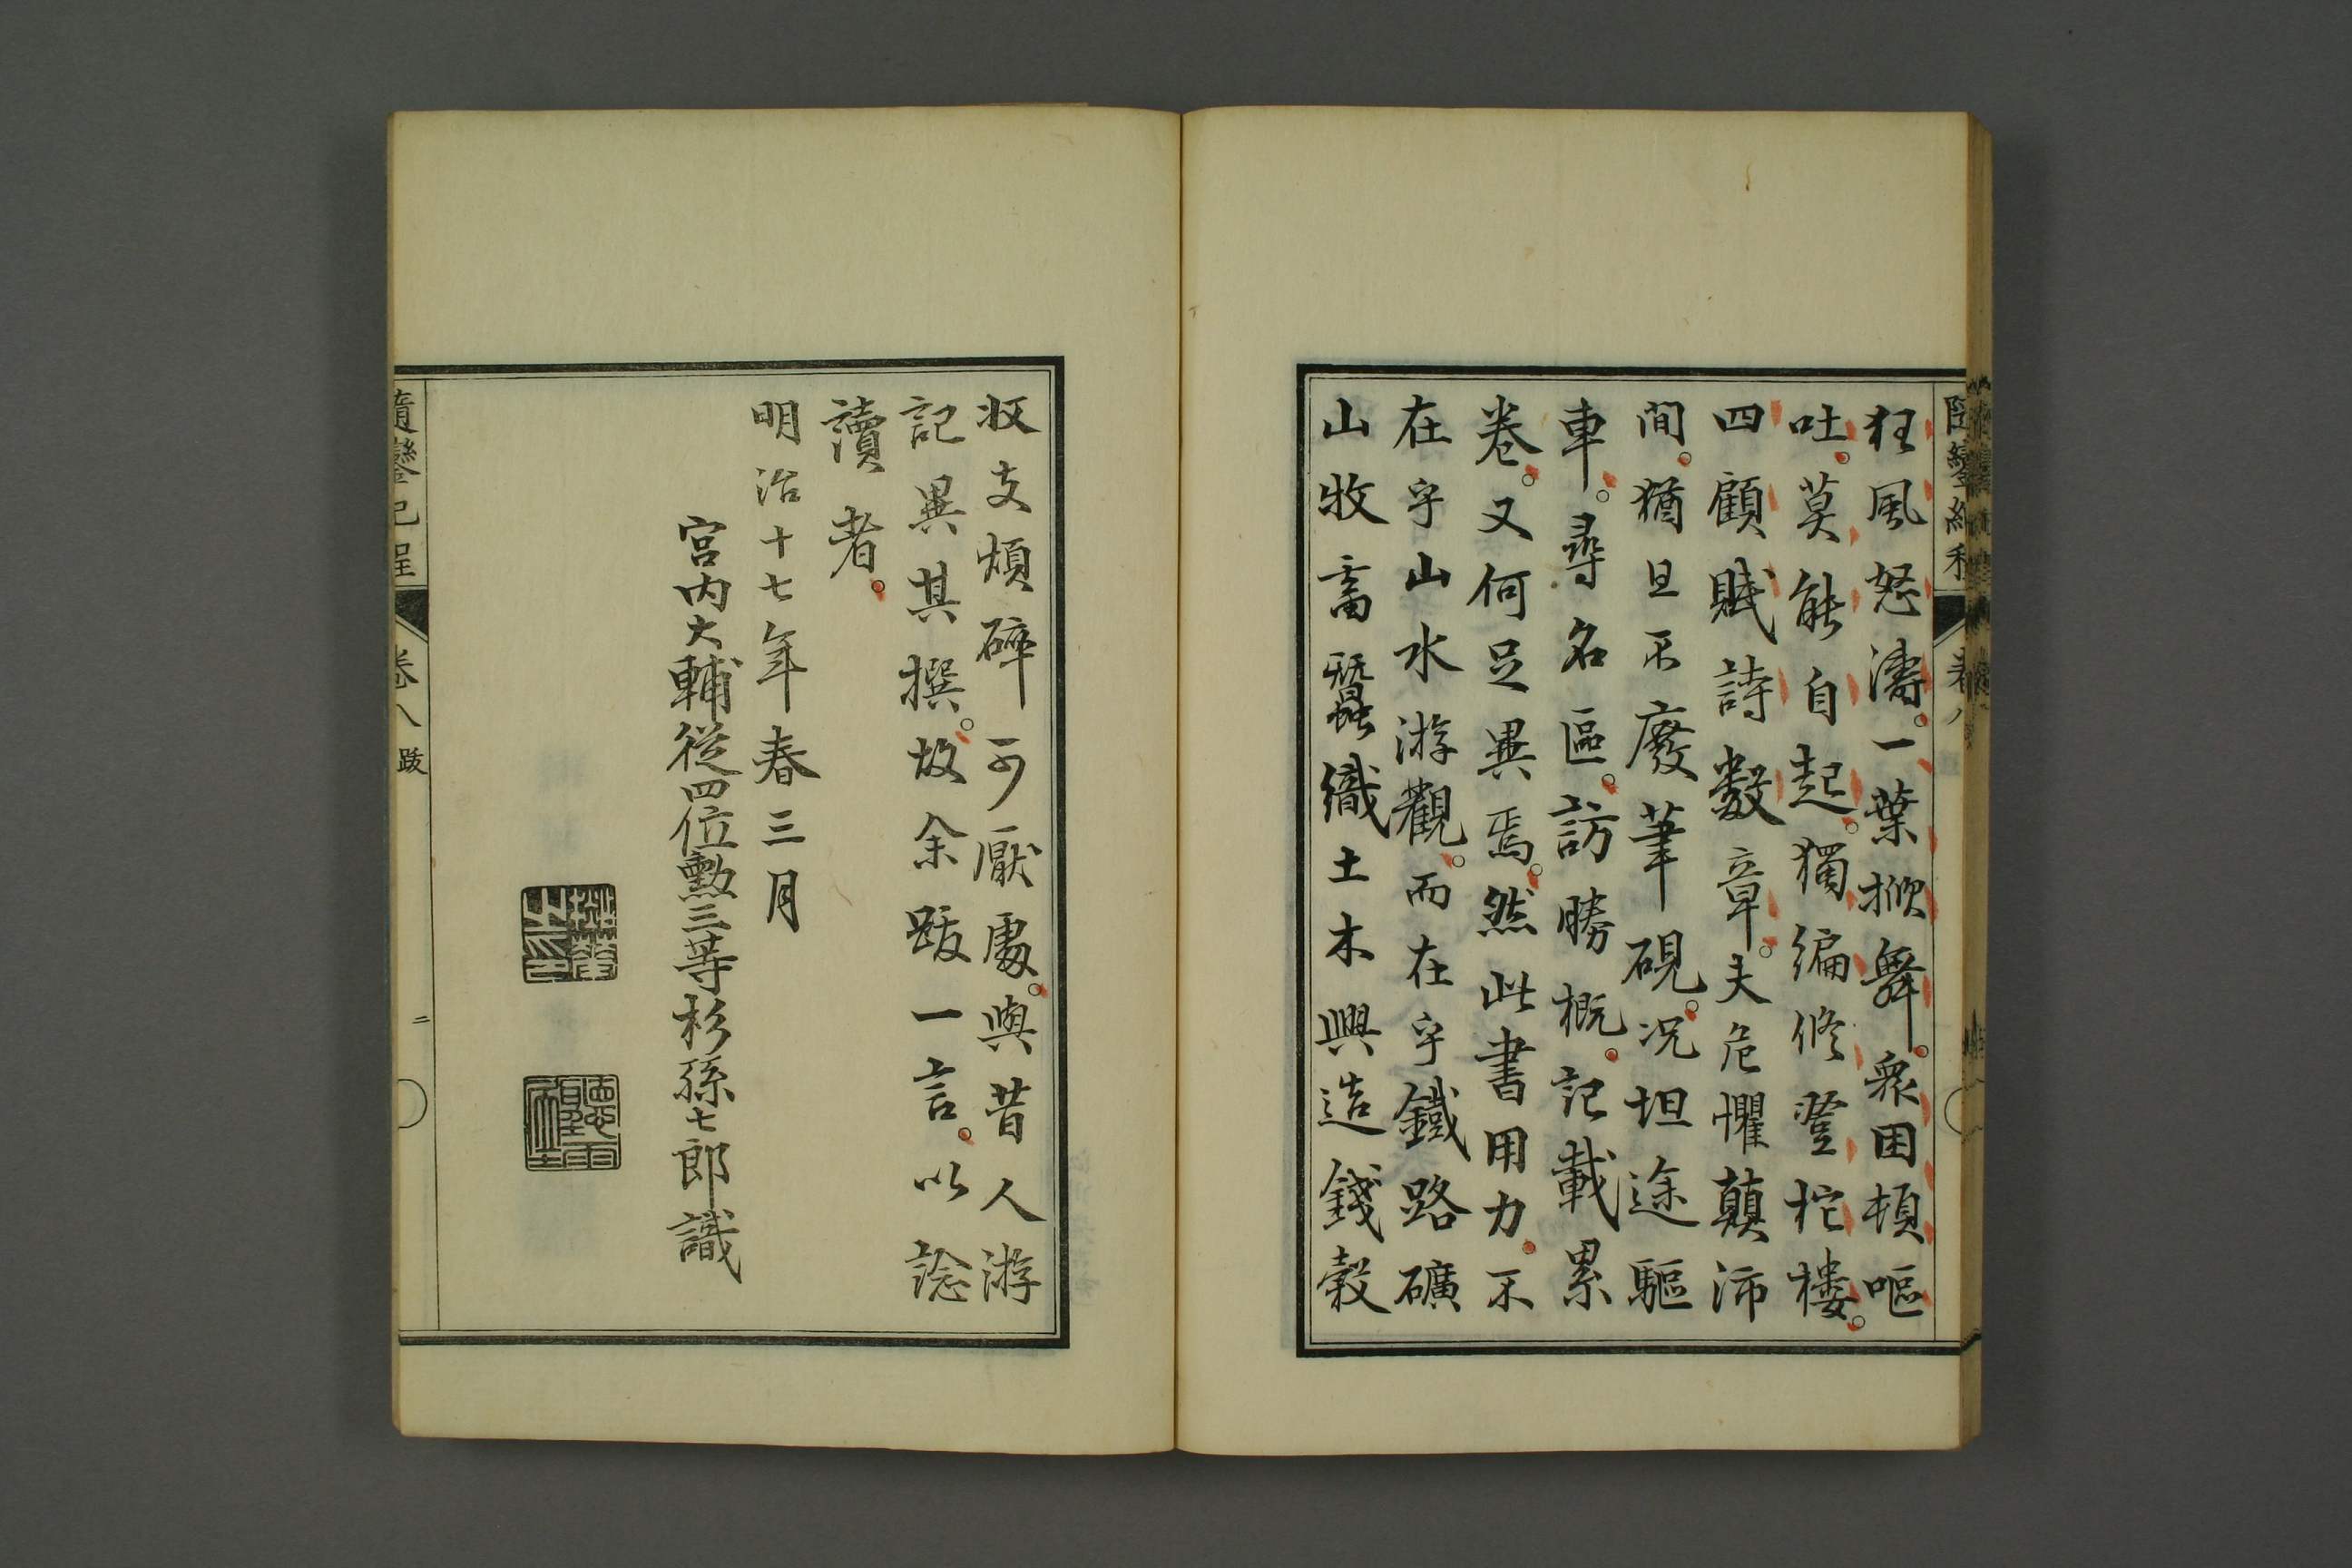 狂風怒濤。一葉掀舞。衆困頓嘔
吐。莫能自起。獨編修登柁樓。
四顧賦詩數章。夫危懼顛沛
間。猶且不廢筆硯。況坦途驅
車。尋名區。訪勝概。記載累
卷。又何足異焉。然此書用力。不
在乎山水游觀。而在乎鐵路礦
山牧畜蠶織土木興造錢穀
收支煩碎可厭處。與昔人游
記異其撰。故余跋一言。以諗
讀者。
明治十七年春三月
宮内大輔從四位勲三等杉孫七郎識
隨鑾紀程
卷八
跋
二